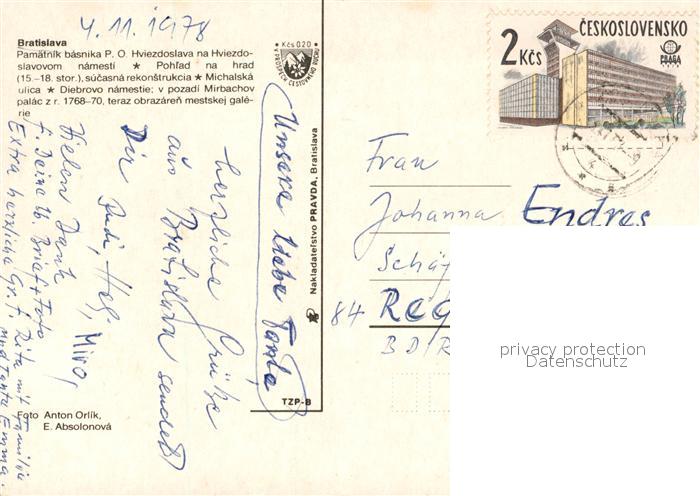 4.11.1978
Bratislava
Pamätník básnika P. O. Hviezdoslava na Hviezdo-
slavovom námestí ★ Pohľad na hrad
(15.–18. stor.), súčasná rekonštrukcia ★ Michalská
ulica ★ Diebrovo námestie; v pozadí Mirbachov
palác z r. 1768–70, teraz obrazáreň mestskej galé-
rie
Kčs 0,20
K PROSPECHU CESTOVNÉHO RUCHU
Unsere liebe Tante
herzliche Grüße
aus Bratislava sendet
Dir
Rudi, Hel, Miro,
Vielen Dank
f. Deine lb. Brief + Foto
Extra herzliche Gr. f. Rita mit Familie
und Tante Emma.
Foto Anton Orlík,
E. Absolonová
Nakladateľstvo PRAVDA, Bratislava
TZP-B
ČESKOSLOVENSKO
2 Kčs
PRAGA
1978
Frau
Johanna Endres
Schä
84 Reg
BDR
privacy protection
Datenschutz